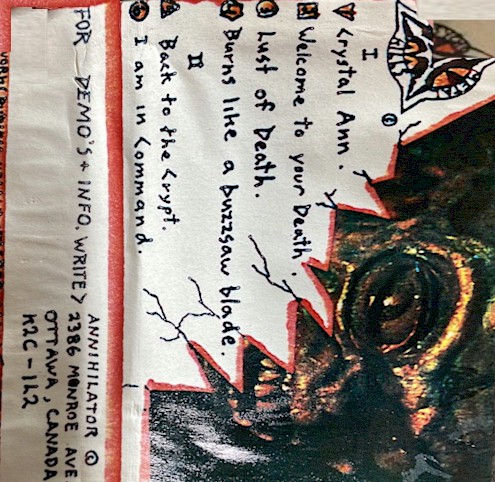 I
Crystal Ann.
Welcome to your Death.
Lust of Death.
Burns like a buzzsaw blade.
II
Back to the Crypt.
I am in Command.
FOR DEMO'S + INFO. WRITE > ANNIHILATOR @
2386 MONROE AVE
OTTAWA, CANADA
K2C-1L2